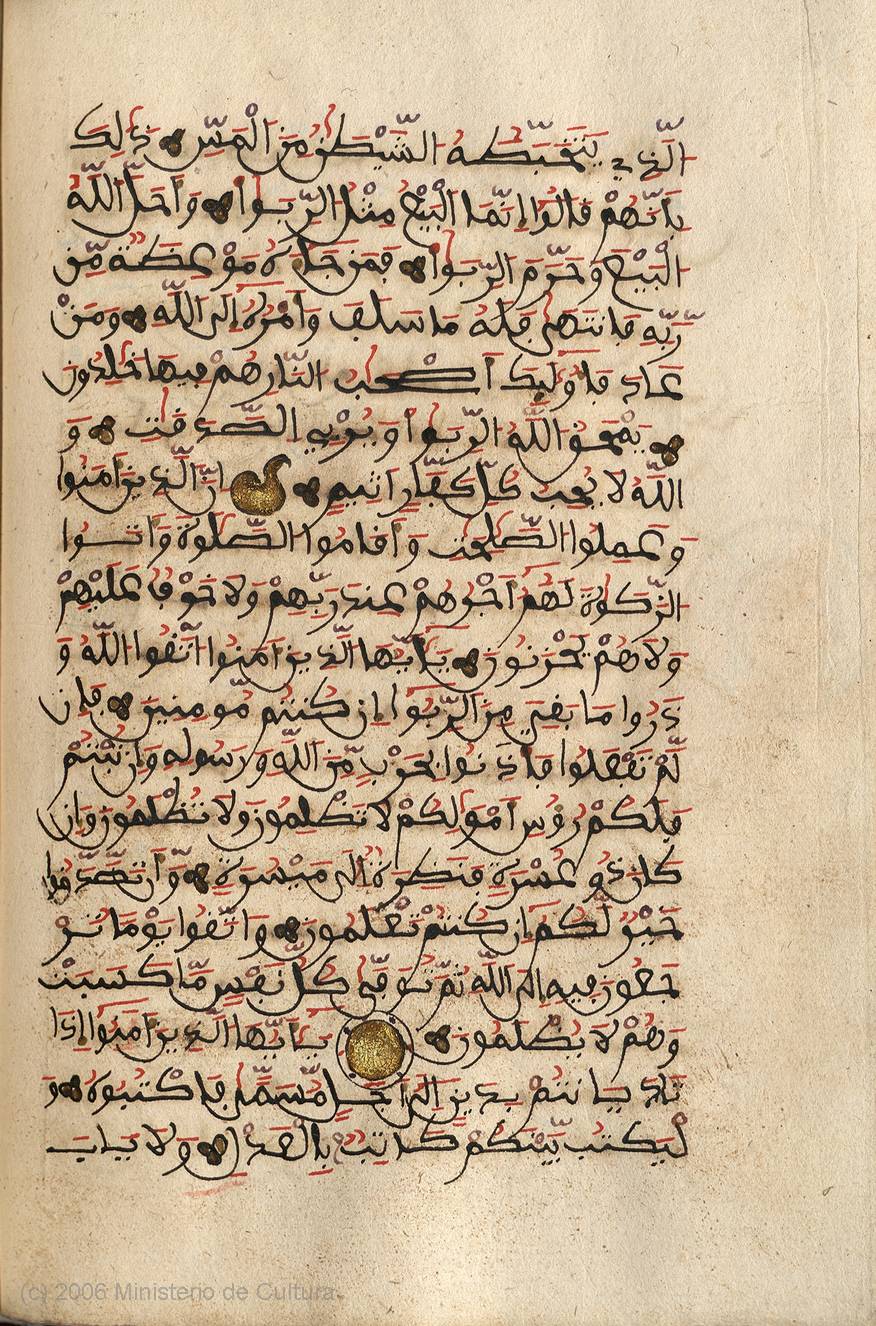 الذي يتخبطه الشيطن من المس ذلك
بأنهم قالوا إنما البيع مثل الربوا وأحل الله
البيع وحرم الربوا فمن جاءه موعظة من
ربه فانتهى فله ما سلف وأمره إلى الله ومن
عاد فأوليك أصحب النار هم فيها خلدون
يمحق الله الربوا ويربي الصدقت و
الله لا يحب كل كفار أثيم إن الذين ءامنوا
وعملوا الصلحت وأقاموا الصلوة وءاتوا
الزكوة لهم أجرهم عند ربهم ولا خوف عليهم
ولا هم يحزنون يأيها الذين ءامنوا اتقوا الله و
ذروا ما بقي من الربوا إن كنتم مومنين فإن
لم تفعلوا فأذنوا بحرب من الله ورسوله وإن تبتم
فلكم رءوس أمولكم لا تظلمون ولا تظلمون وإن
كان ذو عسرة فنظرة إلى ميسرة وأن تصدقوا
خير لكم إن كنتم تعلمون واتقوا يوما تر
جعون فيه إلى الله ثم توفى كل نفس ما كسبت
وهم لا يظلمون يأيها الذين ءامنوا إذا
تداينتم بدين إلى أجل مسمى فاكتبوه و
ليكتب بينكم كاتب بالعدل ولا ياب
(c) 2006 Ministerio de Cultura